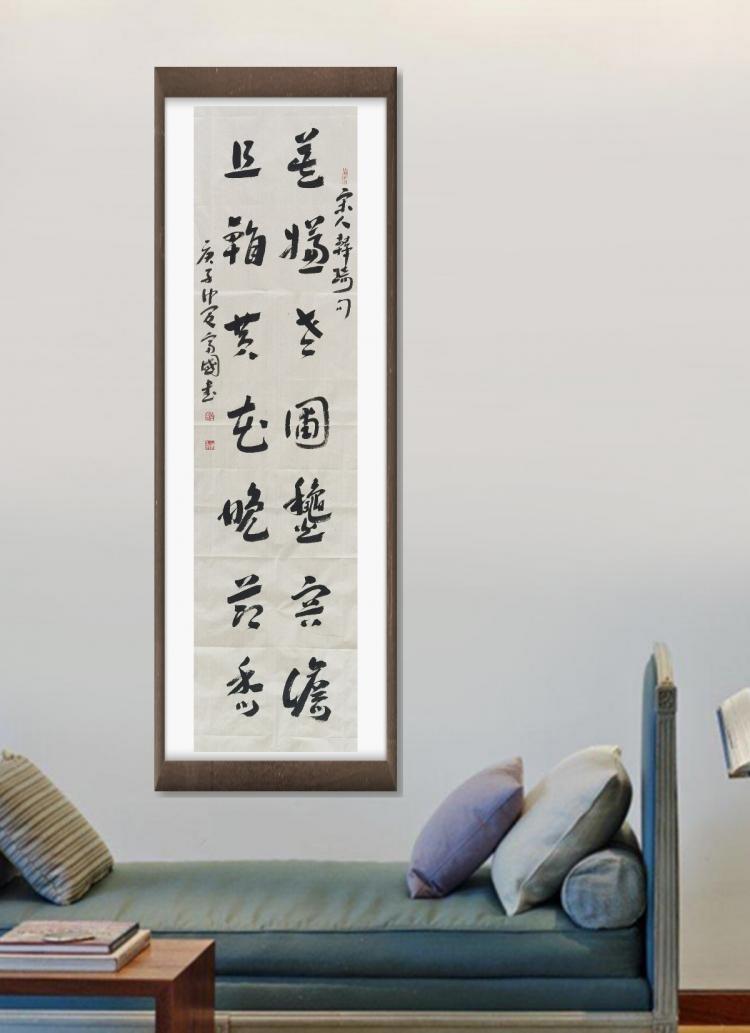 宋人韓琦句
莫嫌老圃秋容澹
且看黄花晚节香
庚子仲夏國書